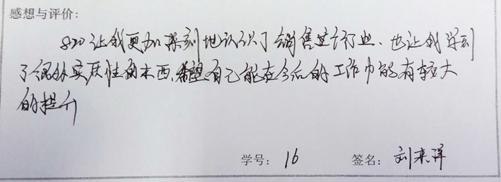 感想与评价:
820让我更加深刻地认识了销售这个行业、也让我学到
了很多实质性的东西,希望自己能在今后的工作中能有较大
的提升
学号: 16 签名: 刘来洋